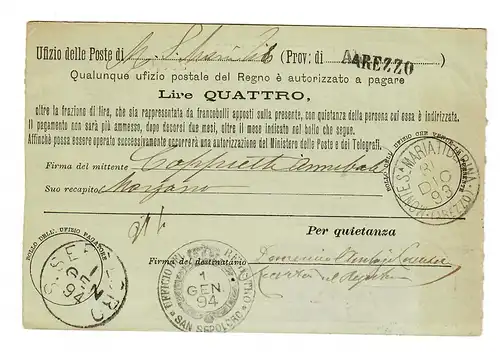 Ufizio delle Poste di M. S. Maria Tib (Prov: di AREZZO)
Qualunque ufizio postale del Regno è autorizzato a pagare
Lire QUATTRO,
oltre la frazione di lira, che sia rappresentata da francobolli apposti sulla presente, con quietanza della persona cui essa è indirizzata.
Il pagamento non sarà più ammesso, dopo decorsi due mesi, oltre il mese indicato nel bollo che segue.
Affinchè possa essere operato successivamente occorrerà una autorizzazione del Ministero delle Poste e dei Telegrafi.
Firma del mittente
Suo recapito
BOLLO DELL' UFIZIO CHE
MONTE S. MARIA TIBERINA (AREZZO)
DIC
93
BOLLO DELL' UFIZIO PAGATORE
GEN
94
Per quietanza
Firma del destinatario Domenico
UFFICIO DEL REGISTRO
1
GEN
94
SAN SEPOLCRO